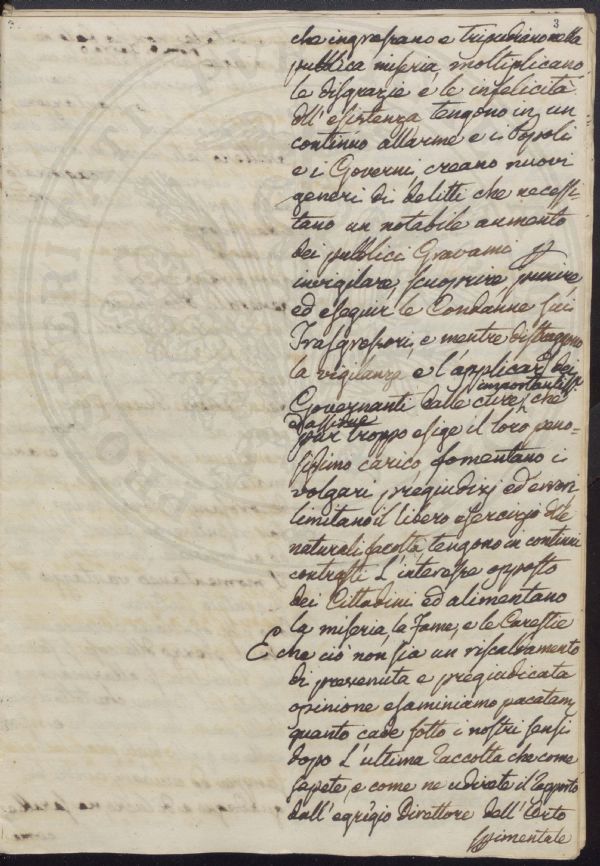 3
che ingrassano e tripudiano nella
pubblica miseria, moltiplicano
le disgrazie e le infelicità
dll'esistenza tengono in un
continuo allarme e i Popoli
e i Governi, creano nuovi
generi di delitti che necessi-
tano un notabile aumento
dei pubblici Gravami p
invigilare, scuoprire punire
ed eseguir le Condanne sui
Trasgressori, e mentre distraggono
la vigilanza, e l'applicaz.e dei
importantiss.e
Governanti dalle cure, che
ed assidue
pur troppo esige il loro peno-
sissimo carico, fomentano i
volgari pregiudizj ed errori
limitano il libero esercizio dlle
naturali facoltà, tengono in continui
contrasti l'interesse opposto
dei Cittadini ed alimentano
la miseria, la Fame, e le Carestie
E che ciò non sia un riscaldamento
di prevenuta e pregiudicata
opinione esaminiamo pacatam.e
quanto cade sotto i nostri sensi
dopo l'ultima raccolta che come
sapete, e come ne udirete il rapporto
dall'egrégio Direttore dell'Orto
sperimentale